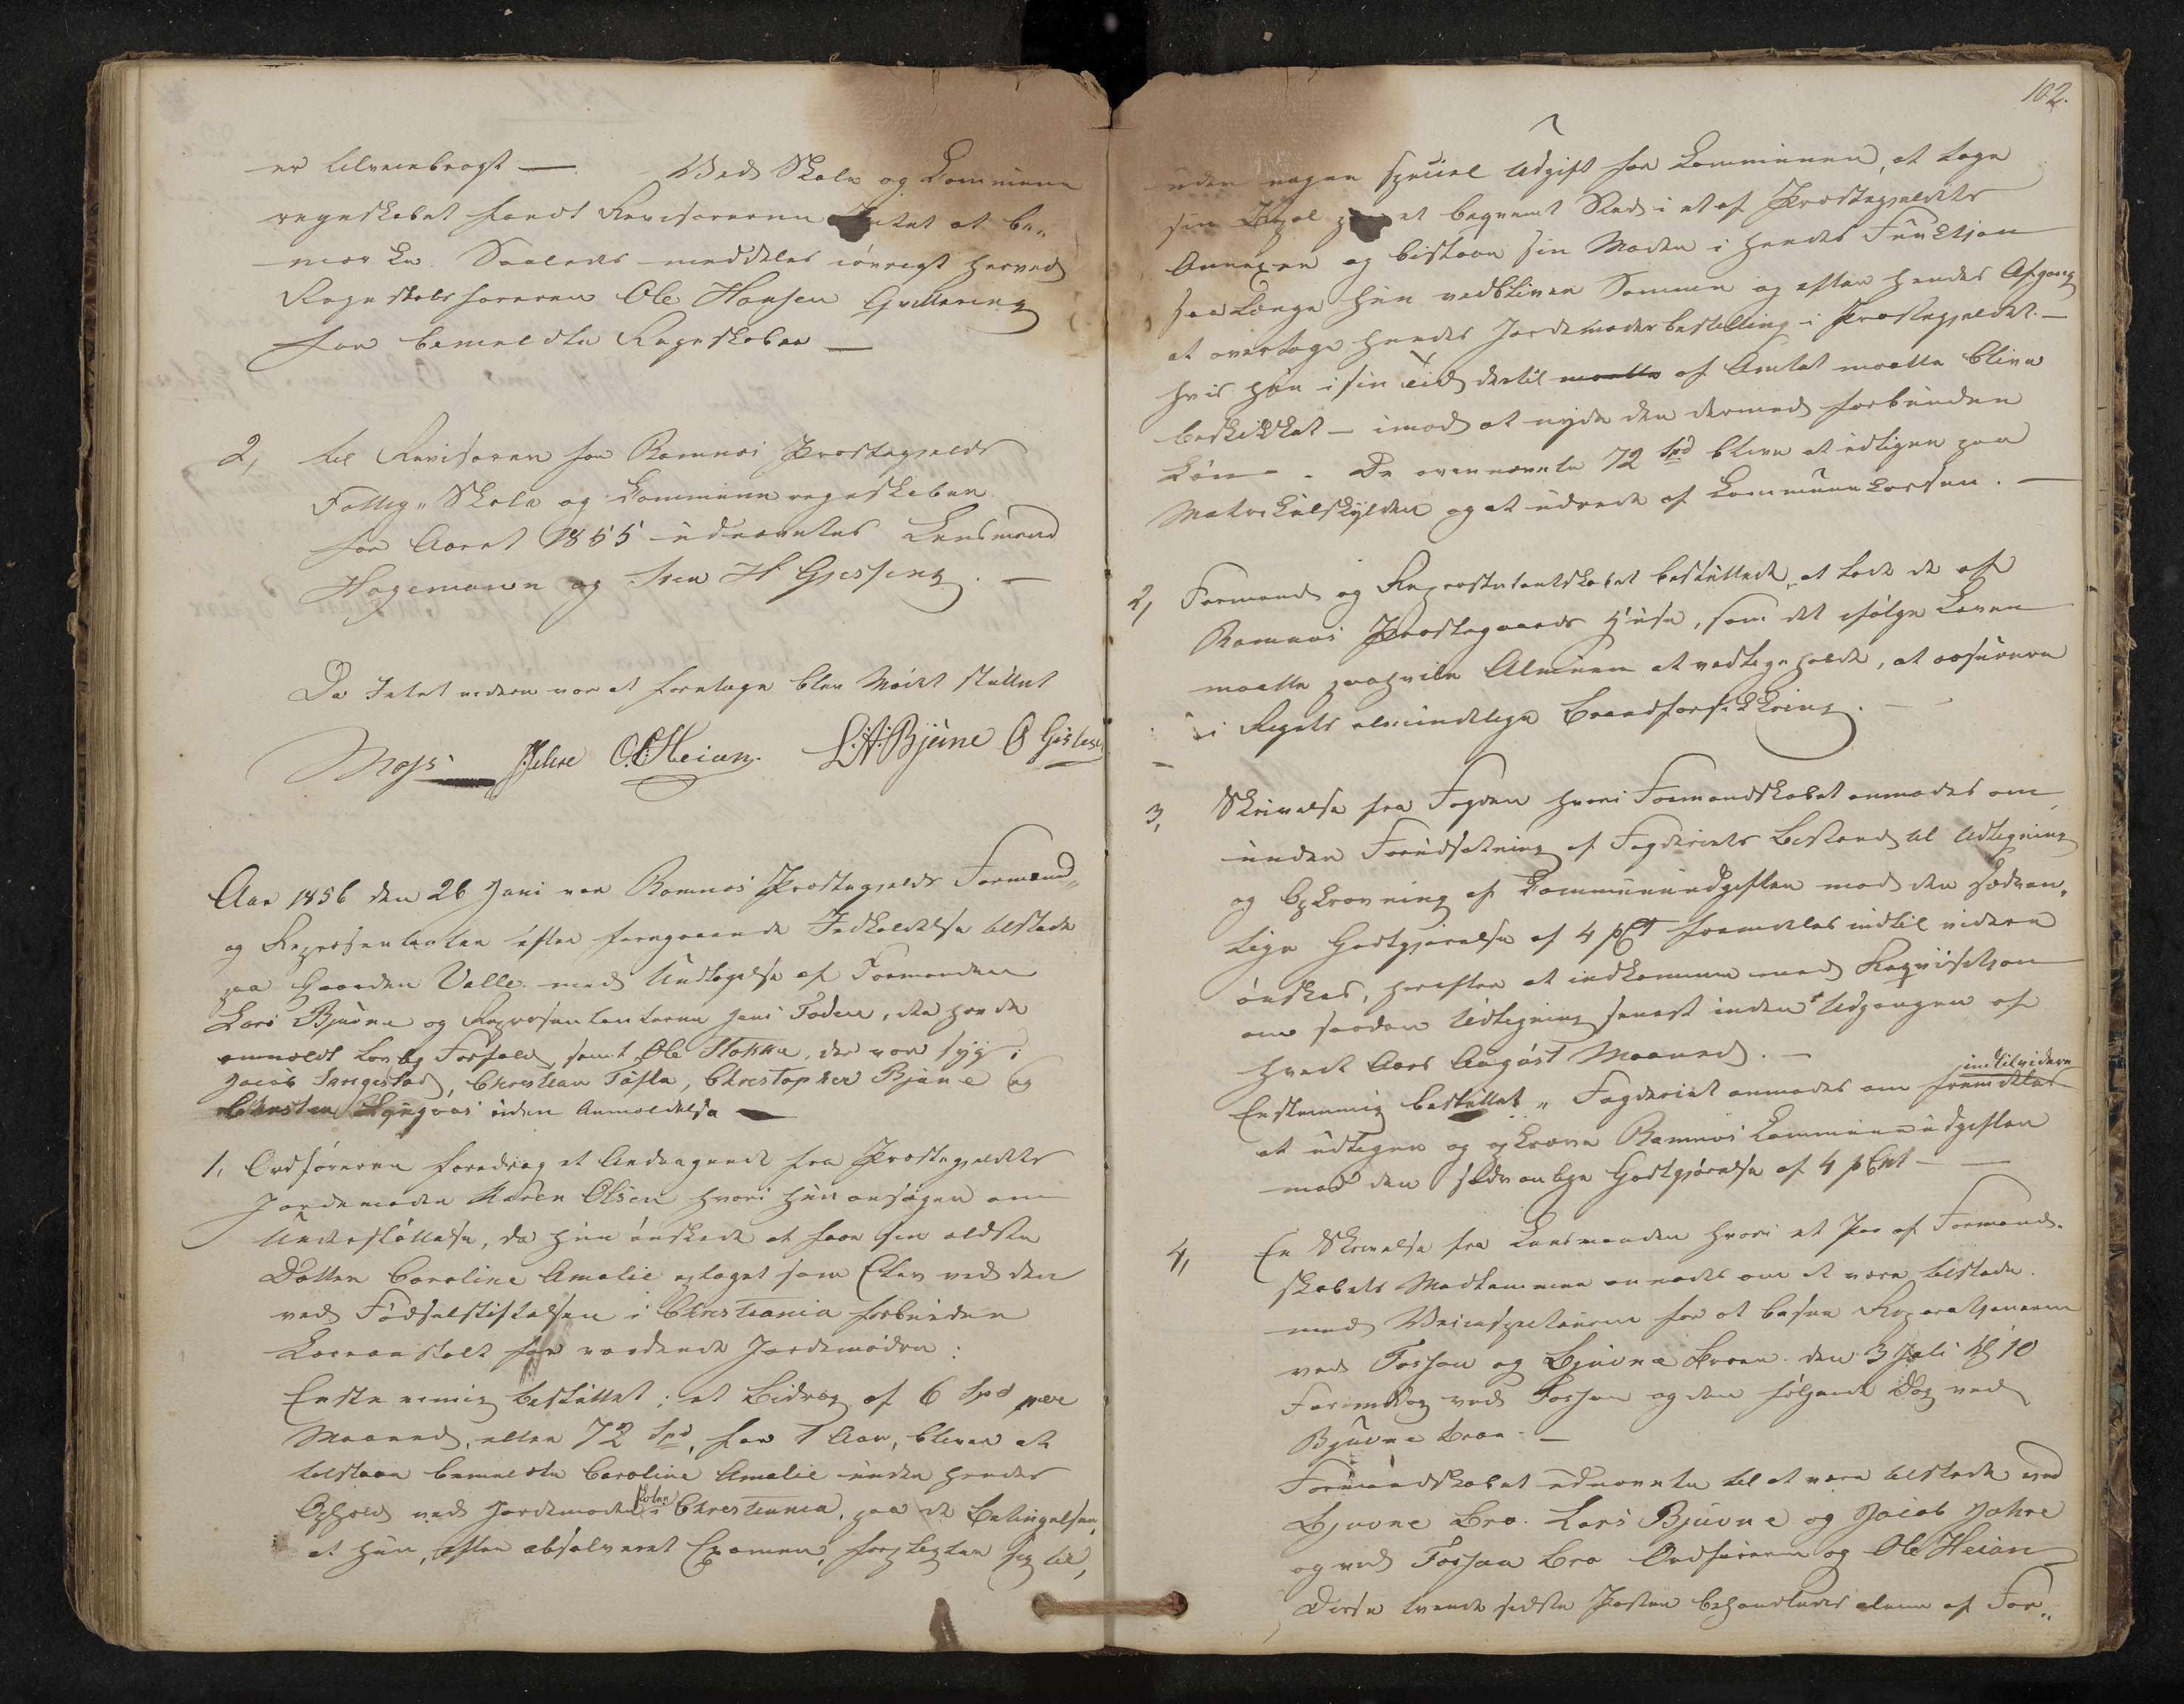 er tilveiebragt — Ved Skole og Commune
regnskabet fandt Revisorerne Intet at be„
mærke. Saaledes meddeles iøvrigt herved
Regnskabsføreren Ole Hansen Qvittering
for bemeldte Regnskaber —
2, til Revisorer for Ramnæs Præstegjelds
Fattig„ Skole og Commune regnskaber
for Aaret 1855 udnævntes Lensmand
Hagemann og H Gjessing. —
Da Intet videre var at foretage blev Mødet sluttet
Moss J Jehre O. C. Heian. L. A. Bjune O Gislesen
Aar 1856 den 26 Juni var Ramnæs Præstegjelds Formænd„
og Repræsentanter efter foregaaende Indkaldelse tilstede
paa Gaarden Valle med Undtagelse af Formanden
Lars Bjuvne og Repræsentanterne Jens Foden, der havde
anmeldt lovlig Forfald, samt Ole Stokke, der var syg;
Jacob Sangestad, Christian Tufte, Christopher Bjune og
Christen Lyngaas uden Anmeldelse —
1, Ordføreren foredrog et Andragende fra Præstegjeldets
Jordemoder Maren Olsen hvori hun ansøger om
Understøttelse, da hun ønskede at faae sin ældste
Datter Caroline Amalie optaget som Elev ved den
ved Fødselsstiftelsen i Christiania forbunden
Læreanstalt for vordende Jordemødre:
Enstemmig besluttet: et Bidrag af 6 Spd per
Maaned, eller 72 Spd, for 1 Aar, bliver at
tilstaae bemeldte Caroline Amalie under hendes
Ophold ved Jordemoderskolen i Christiania, paa de Betingelser,
at hun, efter absolveret Examen, forpligter sig til,
102.
uden nogen speciel Udgift for Communen, at tage
sin Bopæl paa et beqvemt Sted i et af Præstegjeldets
Annexer og bistaae sin Moder i hendes Funktion
saa længe hun vedbliver Samme og efter hendes Afgang
at overtage hendes Jordemoderbestilling i Præstegjeldet. —
hvis hun i sin Tid dertil maatte af Amtet maatte blive
beskikket — imod at nyde den dermed forbunden
Løn —. De ovennævnte 72 Spd blive at udligne paa
Matrikulskylden og at udrede af Communekassen. —
2, Formænd og Repræsentantskabet besluttede at lade de af
Ramnæs Præstegaards Huse, som det ifølge Loven
maatte paahvile Almuen at vedligeholde, at assurere
i Rigets almindelige Brandforsikkring. —
3, Skrivelse fra Fogden hvori Formandskabet anmodes om,
under Forudsætning af Fogderiets Bistand til Udligning
og Opkrævning af Communeudgifter mod den sædvan„
lige Godtgjørelse af 4 pCt fremdeles indtil videre
ønskes, herefter at indkomme med Reqvisition
om saadan Udligning senest inden Udgangen af
hvert Aars August Maaned. —
Enstemmig besluttet „ Fogderiet anmodes om fremdeles indtilvidere
at udligne og opkræve Ramnæs Communeudgifter
mod den sædvanlige Godtgjørelse af 4 pCnt —
4, En Skrivelse fra Lensmanden hvori et Par af Formand„
skabets Medlemmer anmodes om at være tilstede
med Veiinspecteuren for at besee Reparationerne
ved Fossan og Bjuvne Broer den 3 Juli Kl 10
Formiddag ved Fossan og den følgende Dag ved
Bjuvne Broe. —
Formandskabet udnævnte til at være tilstede ved
Bjuvne Bro Lars Bjuvne og Jacob Jahre
og ved Fossan Bro Ordføreren og Ole Heian
Disse tvende sidste Poster behandledes alene af For„